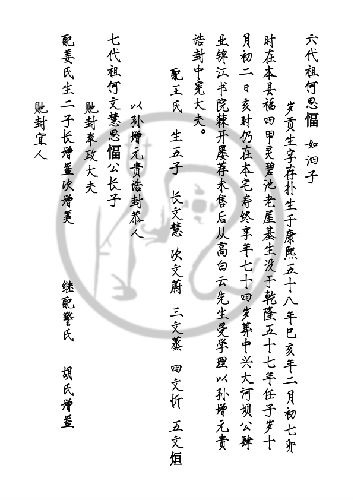 六代祖何思愊 如泗子
岁贡生字存朴生于康熙五十八年巳亥年二月初七卯
时在本县福四甲灵碧池老屋基生没于乾隆五十七年任子岁十
月初二日亥时仍在本宅寿终享年七十四岁葬中兴大河坝公肄
业锦江书院棘开屡荐未售后从高白云先生受学理以孙增元贵
诰封中宪大夫。
配王氏 生五子 长文慧 次文蔚 三文蒸 四文炘 五文烜
以孙增元贵诰封恭人
七代祖何文慧思愊公长子
貤封奉政大夫
配姜氏生二子长增益次增美 继配黎氏 胡氏增益
貤封宜人